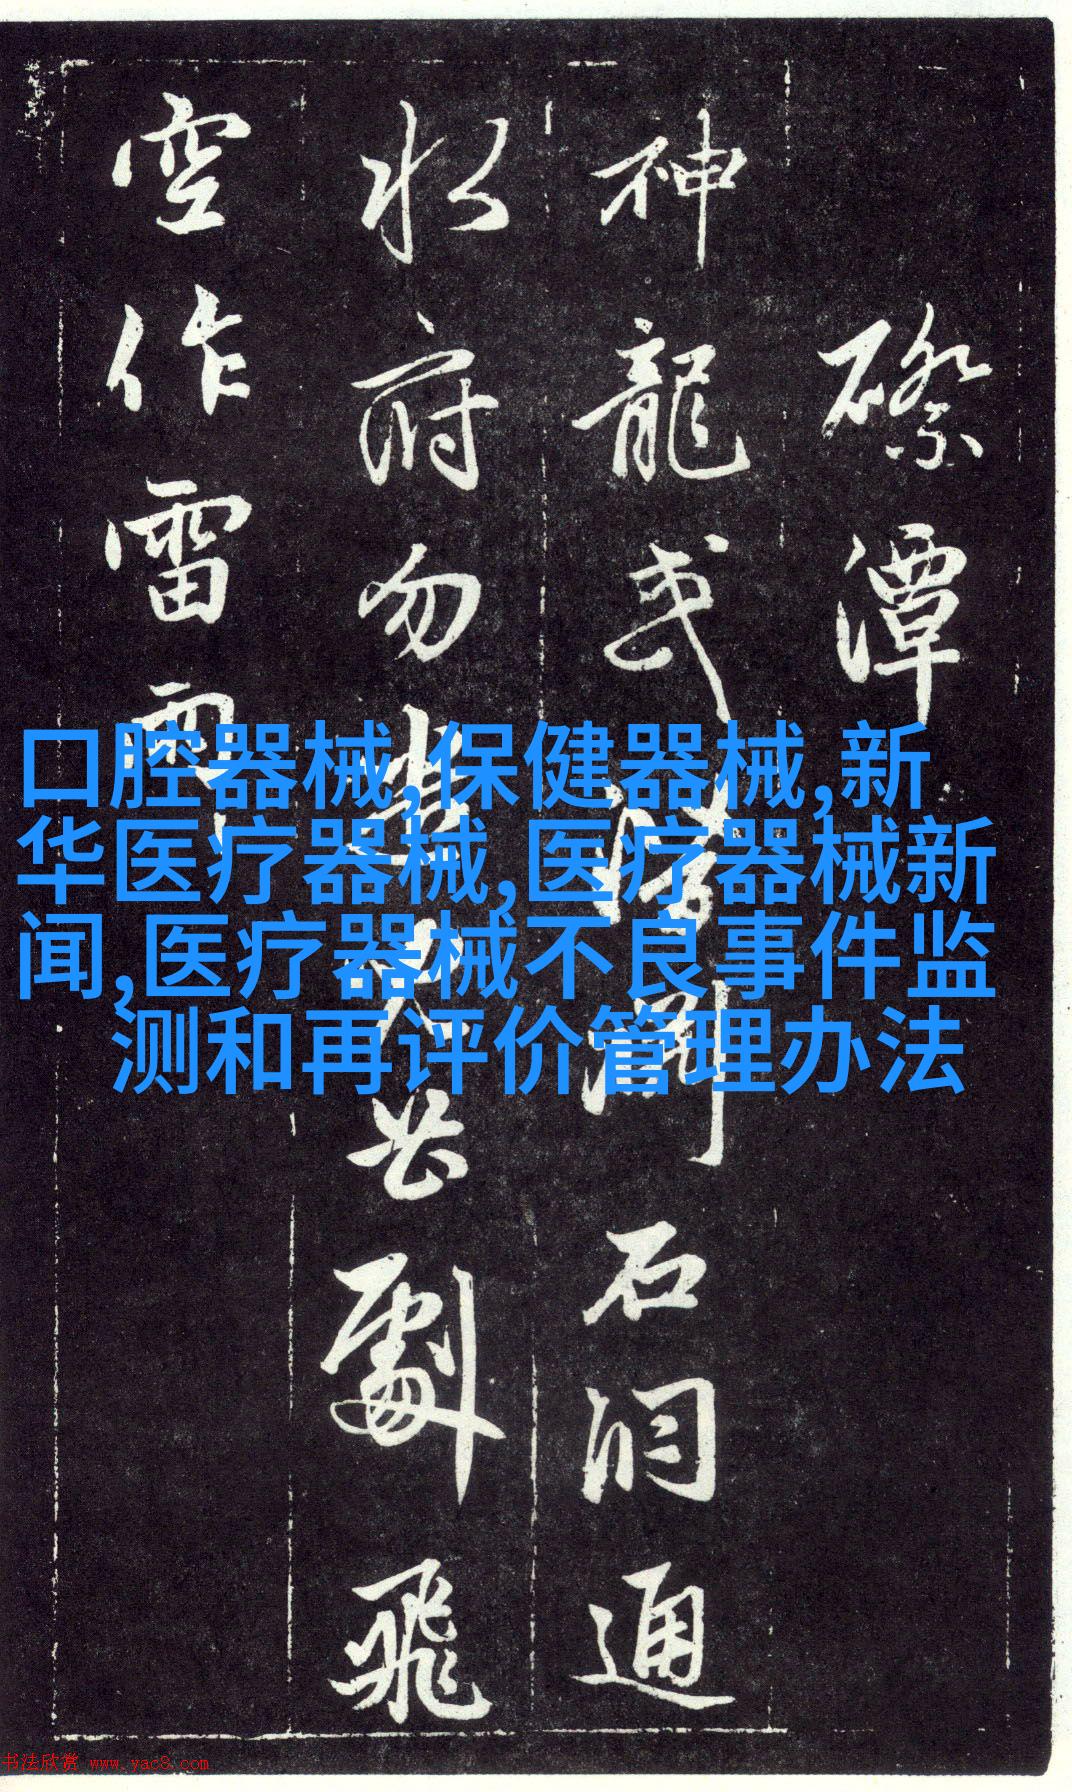 潭
神龍或潛淵石洞通
水府勿劇飛
空作雷雨
口腔器械,保健器械,新
华医疗器械,医疗器械新
闻,医疗器械不良事件监
测和再评价管理办法
书法欣赏 www.yac8.com